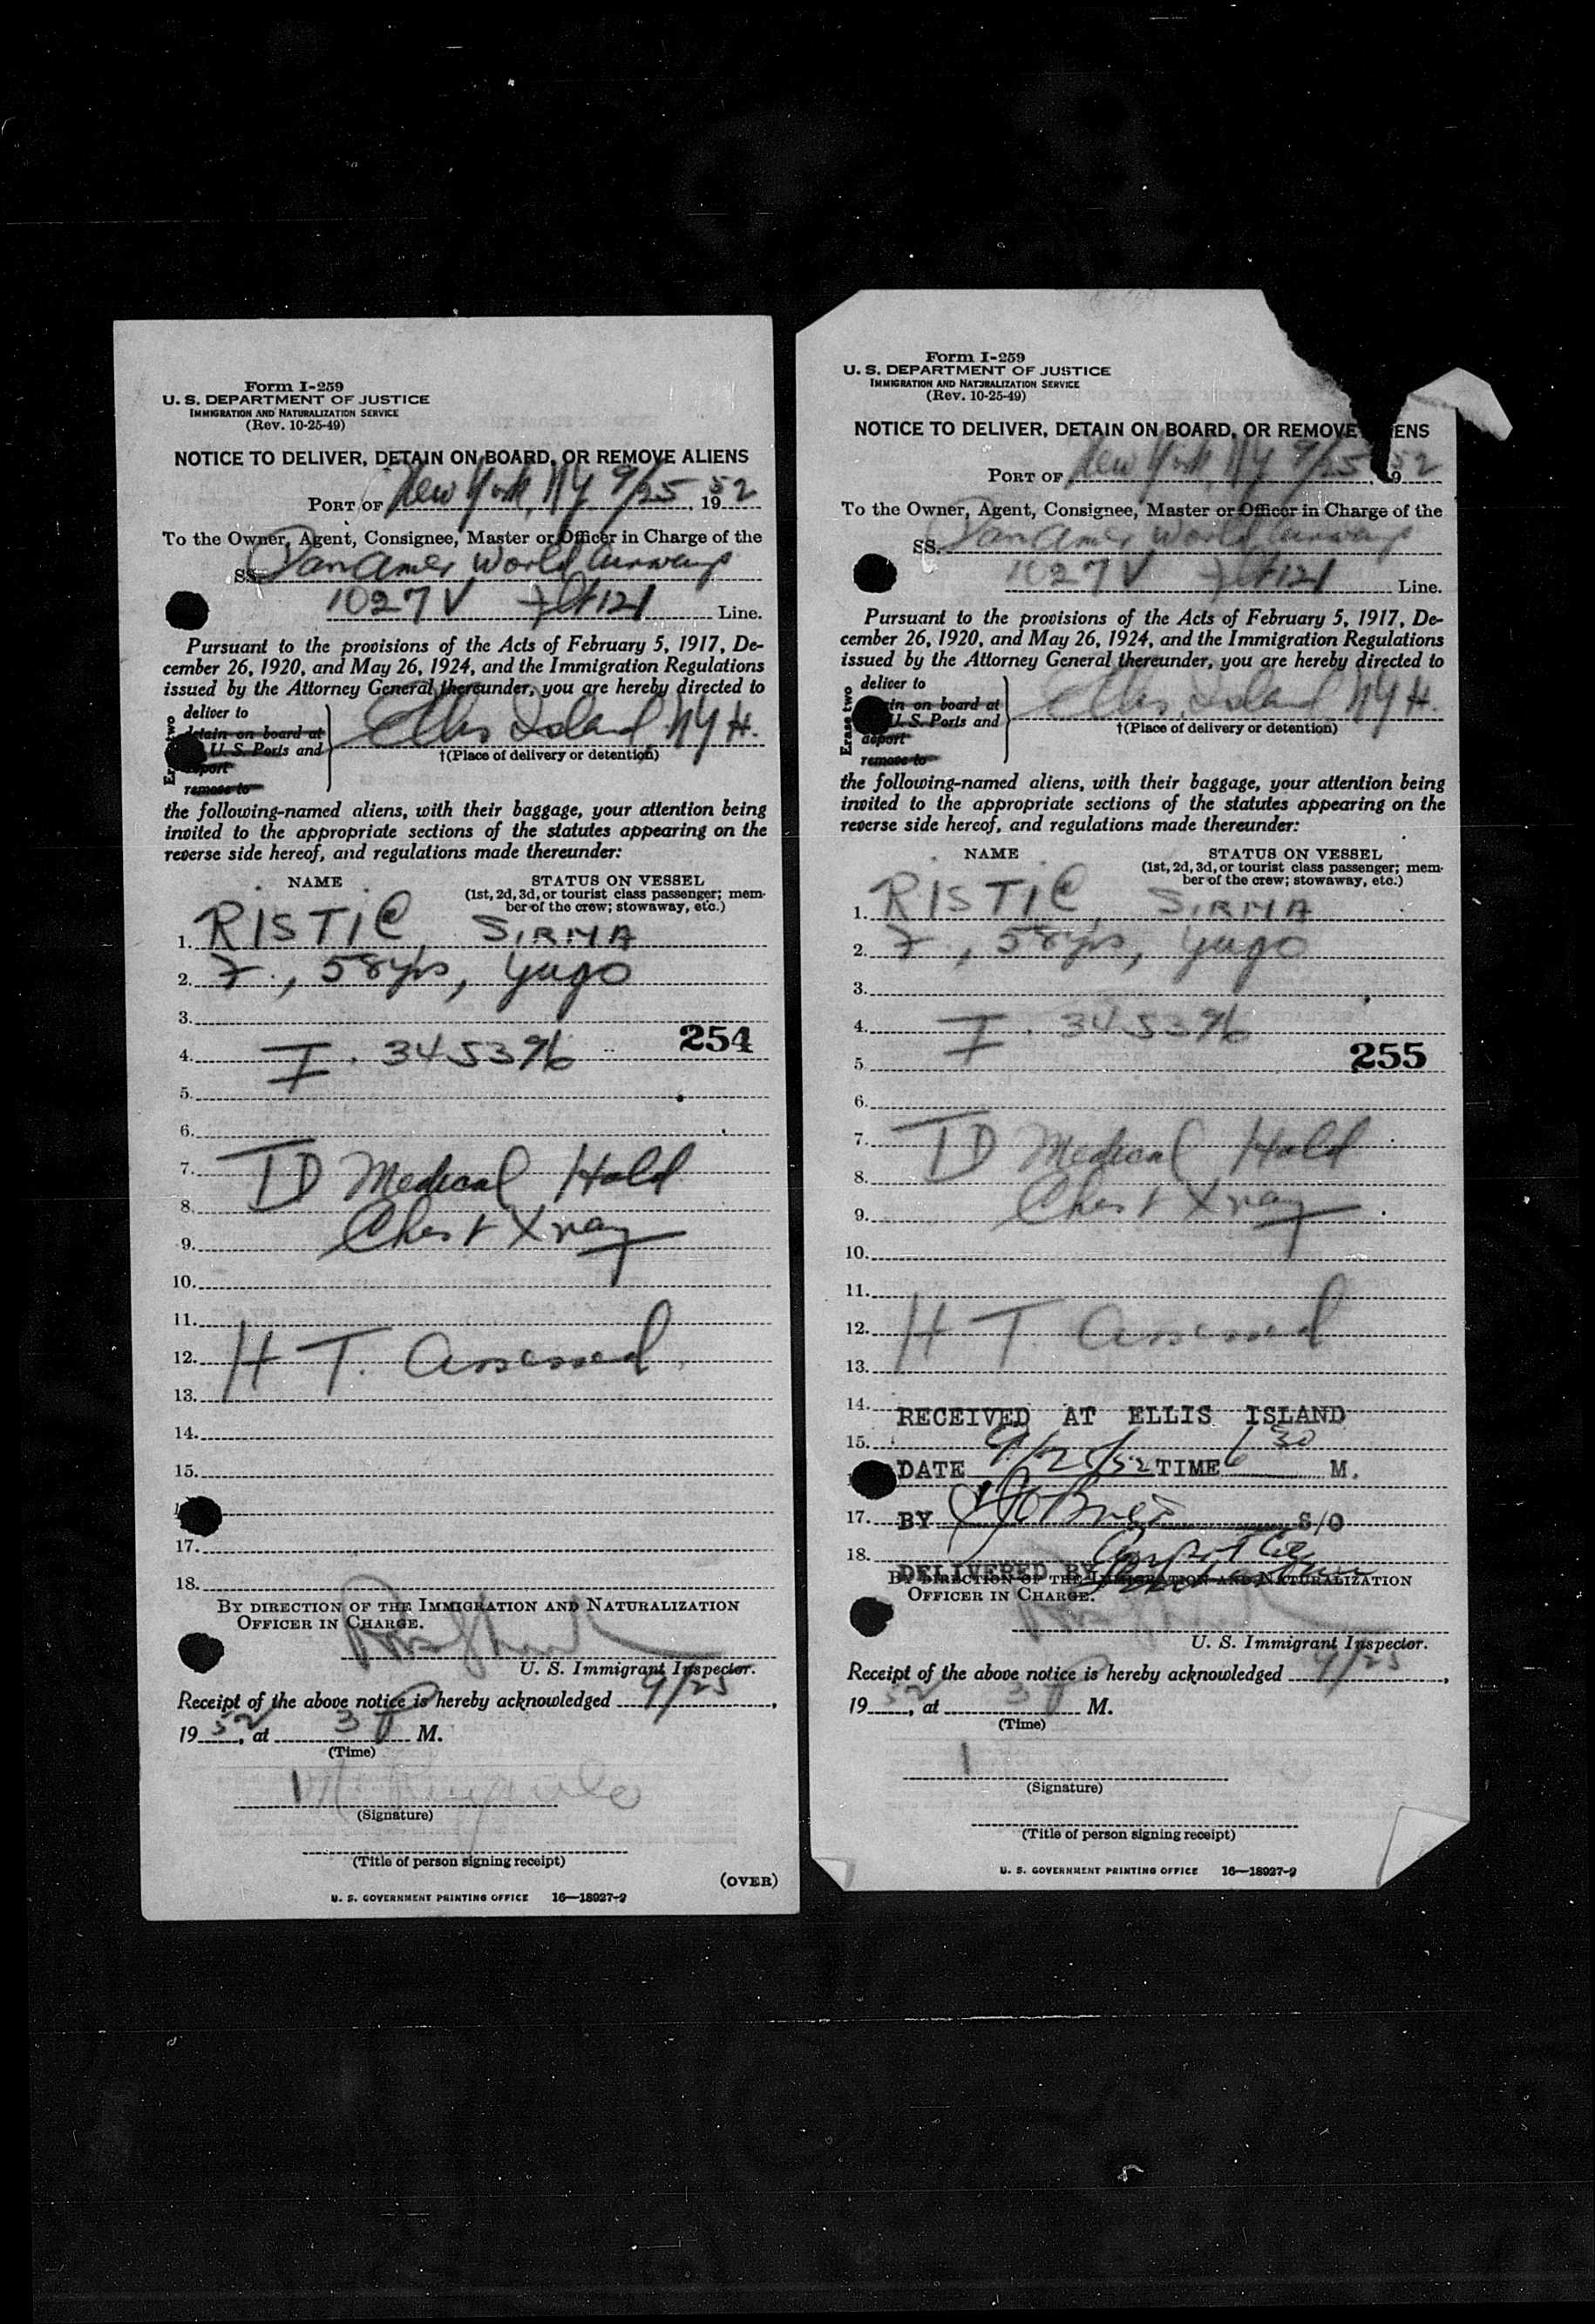 Form I-259
U. S. DEPARTMENT OF JUSTICE
IMMIGRATION AND NATURALIZATION SERVICE
(Rev. 10-25-49)
NOTICE TO DELIVER, DETAIN ON BOARD, OR REMOVE ALIENS
PORT OF New York, NY 9/25, 1952
To the Owner, Agent, Consignee, Master or Officer in Charge of the
SS. Pan Amer World Airways
1027V Flt 121 Line.
Pursuant to the provisions of the Acts of February 5, 1917, De-
cember 26, 1920, and May 26, 1924, and the Immigration Regulations
issued by the Attorney General thereunder, you are hereby directed to
deliver to
detain on board at
U. S. Ports and
deport
remove to
Ellis Island NYH.
†(Place of delivery or detention)
the following-named aliens, with their baggage, your attention being
invited to the appropriate sections of the statutes appearing on the
reverse side hereof, and regulations made thereunder:
NAME STATUS ON VESSEL
(1st, 2d, 3d, or tourist class passenger; mem-
ber of the crew; stowaway, etc.)
1. RISTIC, SIRMA
2. F., 58 yrs, Yugo
3.
254
4. I. 345396
5.
6.
7. TD Medical Hold
8.
Chest Xray
9.
10.
11.
12. HT. Assessed
13.
14.
15.
17.
18.
BY DIRECTION OF THE IMMIGRATION AND NATURALIZATION
OFFICER IN CHARGE.
U. S. Immigrant Inspector.
Receipt of the above notice is hereby acknowledged 9/25,
1952, at 3 P M.
(Time)
(Signature)
(Title of person signing receipt)
(OVER)
U. S. GOVERNMENT PRINTING OFFICE 16—18927-2
Form I-259
U. S. DEPARTMENT OF JUSTICE
IMMIGRATION AND NATURALIZATION SERVICE
(Rev. 10-25-49)
NOTICE TO DELIVER, DETAIN ON BOARD, OR REMOVE ENS
PORT OF New York, NY 9/25, 952
To the Owner, Agent, Consignee, Master or Officer in Charge of the
SS. Pan Amer World Airways
1027V Flt 121 Line.
Pursuant to the provisions of the Acts of February 5, 1917, De-
cember 26, 1920, and May 26, 1924, and the Immigration Regulations
issued by the Attorney General thereunder, you are hereby directed to
Erase two
deliver to
in on board at
U. S. Ports and
deport
remove to
Ellis Island NYH.
†(Place of delivery or detention)
the following-named aliens, with their baggage, your attention being
invited to the appropriate sections of the statutes appearing on the
reverse side hereof, and regulations made thereunder:
NAME STATUS ON VESSEL
(1st, 2d, 3d, or tourist class passenger; mem-
ber of the crew; stowaway, etc.)
1. RISTIC, SIRMA
2. F., 58 yrs, Yugo
3.
4. I. 345396
255
5.
6.
7. TD Medical Hold
8.
Chest Xray
9.
10.
11.
12. HT. Assessed
13.
14.
RECEIVED AT ELLIS ISLAND
15.
DATE 9/25/52 TIME 6 30 M.
17. BY S/O
18.
DELIVERED BY
BY DIRECTION OF THE IMMIGRATION AND NATURALIZATION
OFFICER IN CHARGE.
U. S. Immigrant Inspector.
Receipt of the above notice is hereby acknowledged 9/25,
1952, at 3 P M.
(Time)
(Signature)
(Title of person signing receipt)
U. S. GOVERNMENT PRINTING OFFICE 16—18927-2